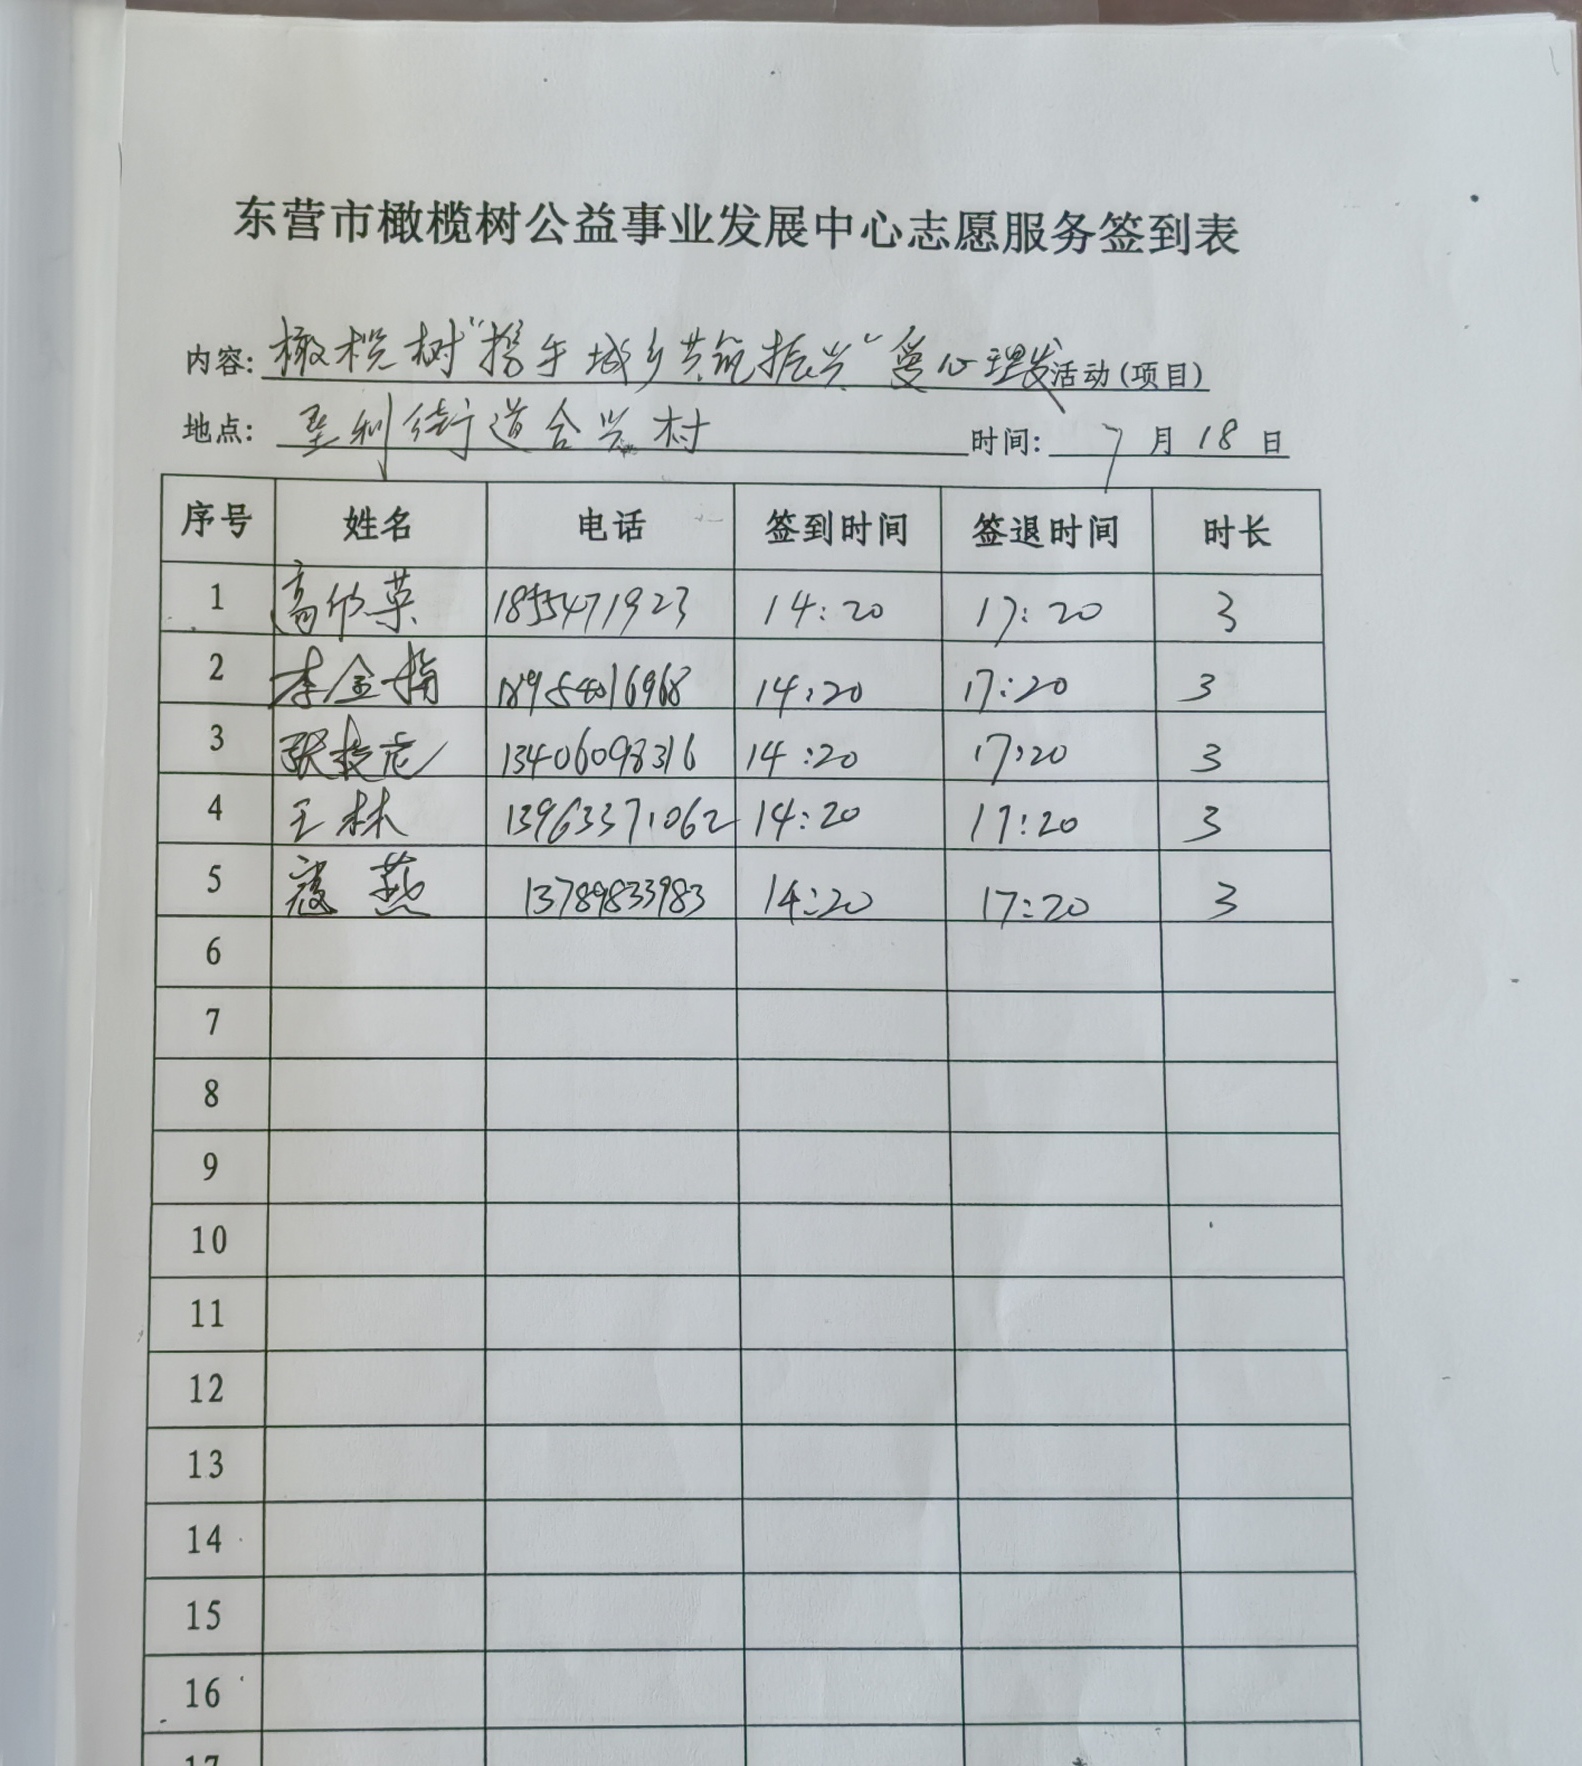 东营市橄榄树公益事业发展中心志愿服务签到表
内容: 橄榄树"携手城乡共筑振兴"爱心理发活动(项目)
地点: 垦利街道合兴村 时间: 7月18日
序号 姓名 电话 签到时间 签退时间 时长
1 高欣英 1855471923 14:20 17:20 3
2 李金娟 18954016968 14:20 17:20 3
3 张 13406098316 14:20 17:20 3
4 王林 13963371062 14:20 17:20 3
5 寇燕 13789833983 14:20 17:20 3
6
7
8
9
10
11
12
13
14
15
16
17